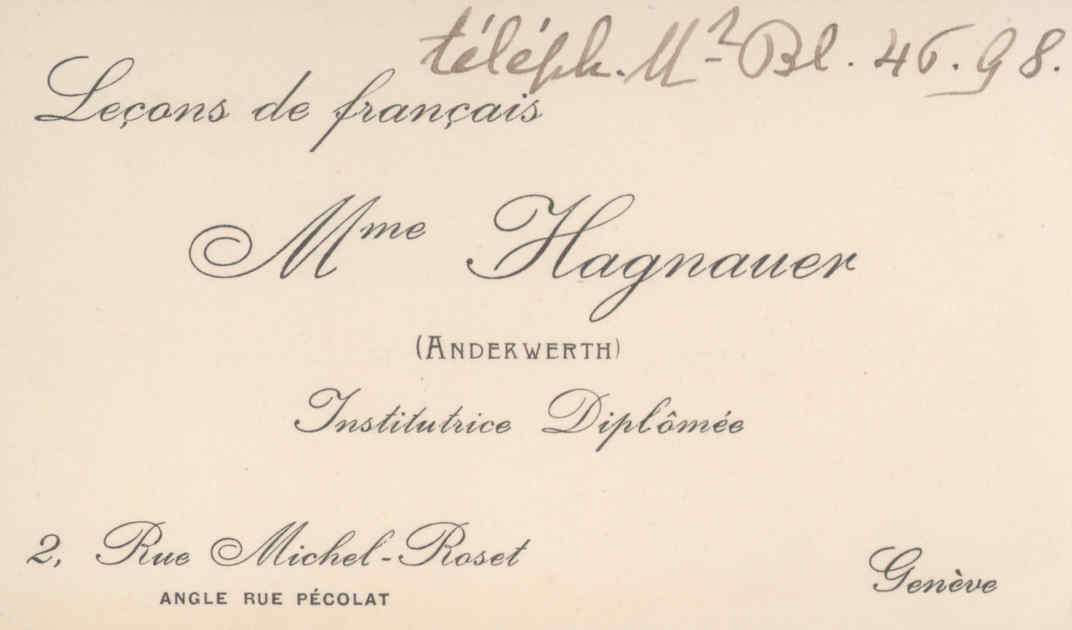 téléph. Mr Bl. 46.98.
Leçons de français
Mme Hagnauer
(ANDERWERTH)
Institutrice Diplômée
2, Rue Michel-Roset
ANGLE RUE PÉCOLAT
Genève